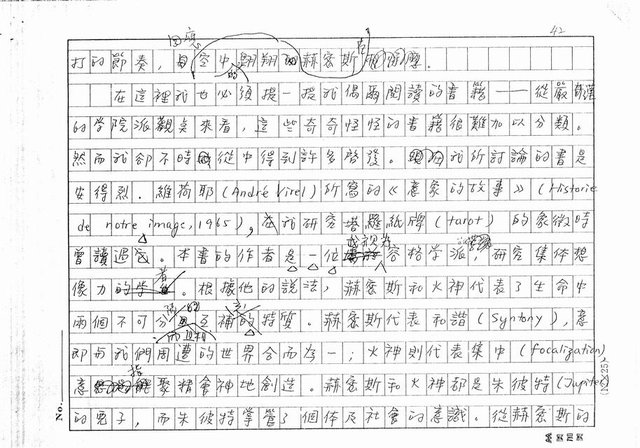 42
打的節奏，回應空中翱翔的赫密斯
在這裡我也必須提一提我偶爾閱讀的書籍——從嚴謹
的學院派觀點來看，這些奇奇怪怪的書籍很難加以分類。
然而我卻不時從中得到許多啓發。我所討論的書是
安得烈．維荷耶（André Virel）所寫的《意象的故事》（Histoire
de notre image, 1965），在我研究塔羅紙牌（tarot）的象徵時
曾讀過它。本書的作者是一位被視為容格学派，研究集体想
像力的学者。根據他的説法，赫密斯和火神代表了生命中
兩個不可分而且相互補的特質。赫密斯代表和諧（Syntony），意
即與我們周遭的世界合而為一；火神則代表集中（focalization），
意指聚精會神地創造。赫密斯和火神都是朱彼特（Jupiter）
的兒子，而朱彼特掌管了個体及社會的意識。從赫密斯的
No.